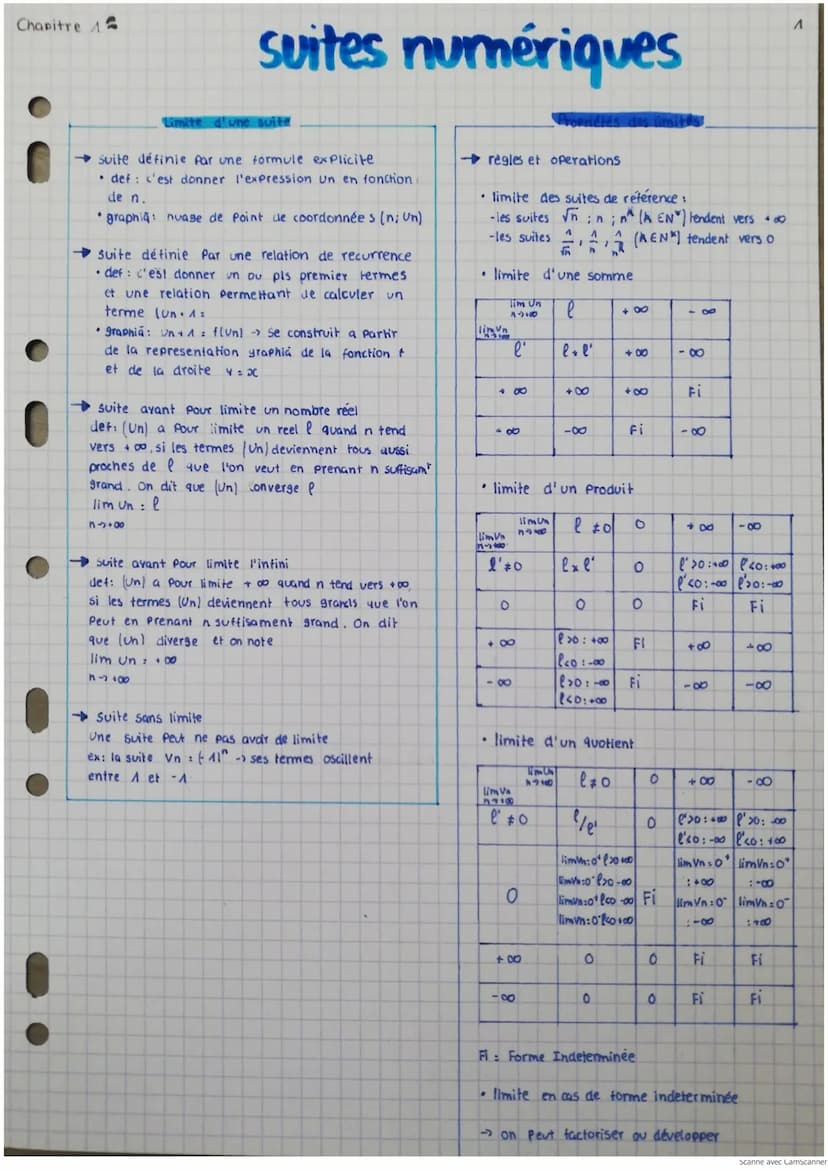 Chapitre 1
1
suites numériques
Limite d'une suite
→ suite définie par une formule explicite
• def : c'est donner l'expression Un en fonction
de n.
• graphiq : nuage de point de coordonnées (n; Un)
→ suite définie par une relation de recurrence
• def : c'est donner un ou pls premier termes
et une relation permettant de calculer un
terme (Un+1 :
• graphiq : Un+1 = f(Un) → se construit a partir
de la representation graphiq de la fonction f
et de la droite y = x
→ suite ayant pour limite un nombre réel
def: (Un) a pour limite un reel ℓ quand n tend
vers +∞, si les termes (Un) deviennent tous aussi
proches de ℓ que l'on veut en prenant n suffisamt
grand. On dit que (Un) converge ℓ
lim Un = ℓ
n→+∞
→ suite ayant pour limite l'infini
def: (Un) a pour limite +∞ quand n tend vers +∞,
si les termes (Un) deviennent tous grands que l'on
peut en prenant n suffisament grand. On dit
que (Un) diverge et on note
lim Un = +∞
n→+∞
→ suite sans limite
une suite peut ne pas avoir de limite
ex: la suite Vn = (-1)ⁿ → ses termes oscillent
entre 1 et -1
Propriétés des limites
→ règles et operations
• limite des suites de référence :
-les suites √n ; n ; nᵏ (k ∈ N*) tendent vers +∞
-les suites 1/√n, 1/n, 1/nᵏ (k ∈ N*) tendent vers 0
• limite d'une somme
lim Un n→+∞ ℓ +∞ -∞
lim Vn n→+∞
ℓ' ℓ+ℓ' +∞ -∞
+∞ +∞ +∞ Fi
-∞ -∞ Fi -∞
• limite d'un produit
lim Un n→+∞ ℓ ≠ 0 0 +∞ -∞
lim Vn n→+∞
ℓ' ≠ 0 ℓ x ℓ' 0 ℓ'>0 : +∞ ℓ'<0 : +∞
ℓ'<0 : -∞ ℓ'>0 : -∞
0 0 0 Fi Fi
+∞ ℓ>0 : +∞ Fi +∞ -∞
ℓ<0 : -∞
-∞ ℓ>0 : -∞ Fi -∞ -∞
ℓ<0 : +∞
• limite d'un quotient
lim Un n→+∞ ℓ ≠ 0 0 +∞ -∞
lim Vn n→+∞
ℓ' ≠ 0 ℓ/ℓ' 0 ℓ'>0 : +∞ ℓ'>0 : -∞
ℓ'<0 : -∞ ℓ'<0 : +∞
lim Vn=0⁺ ℓ>0 +∞ lim Vn = 0⁺ lim Vn = 0⁺
lim Vn=0⁻ ℓ>0 -∞ : +∞ : -∞
0 lim Vn=0⁺ ℓ<0 -∞ Fi lim Vn = 0⁻ lim Vn = 0⁻
lim Vn=0⁻ ℓ<0 +∞ : -∞ : +∞
+∞ 0 0 Fi Fi
-∞ 0 0 Fi Fi
Fi = Forme Indeterminée
• limite en cas de forme indeterminée
→ on peut factoriser ou développer
Scanné avec CamScanner